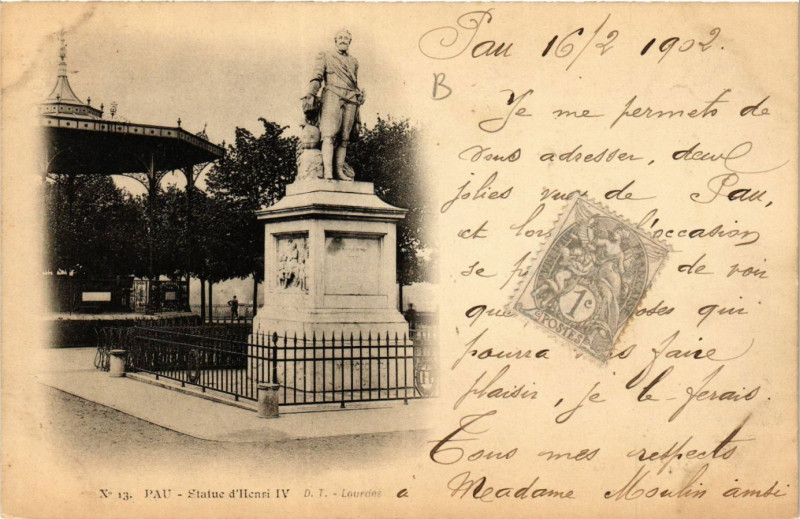 Pau 16/2 1902.
B
Je me permets de
vous adresser, deux
jolies vues de Pau,
et lors l'occasion
se de voir
que choses qui
pourra faire
plaisir, je le ferais.
Tous mes respects
à Madame Moulin ainsi
1c
POSTES
No 13. PAU - Statue d'Henri IV D. T. - Lourdes